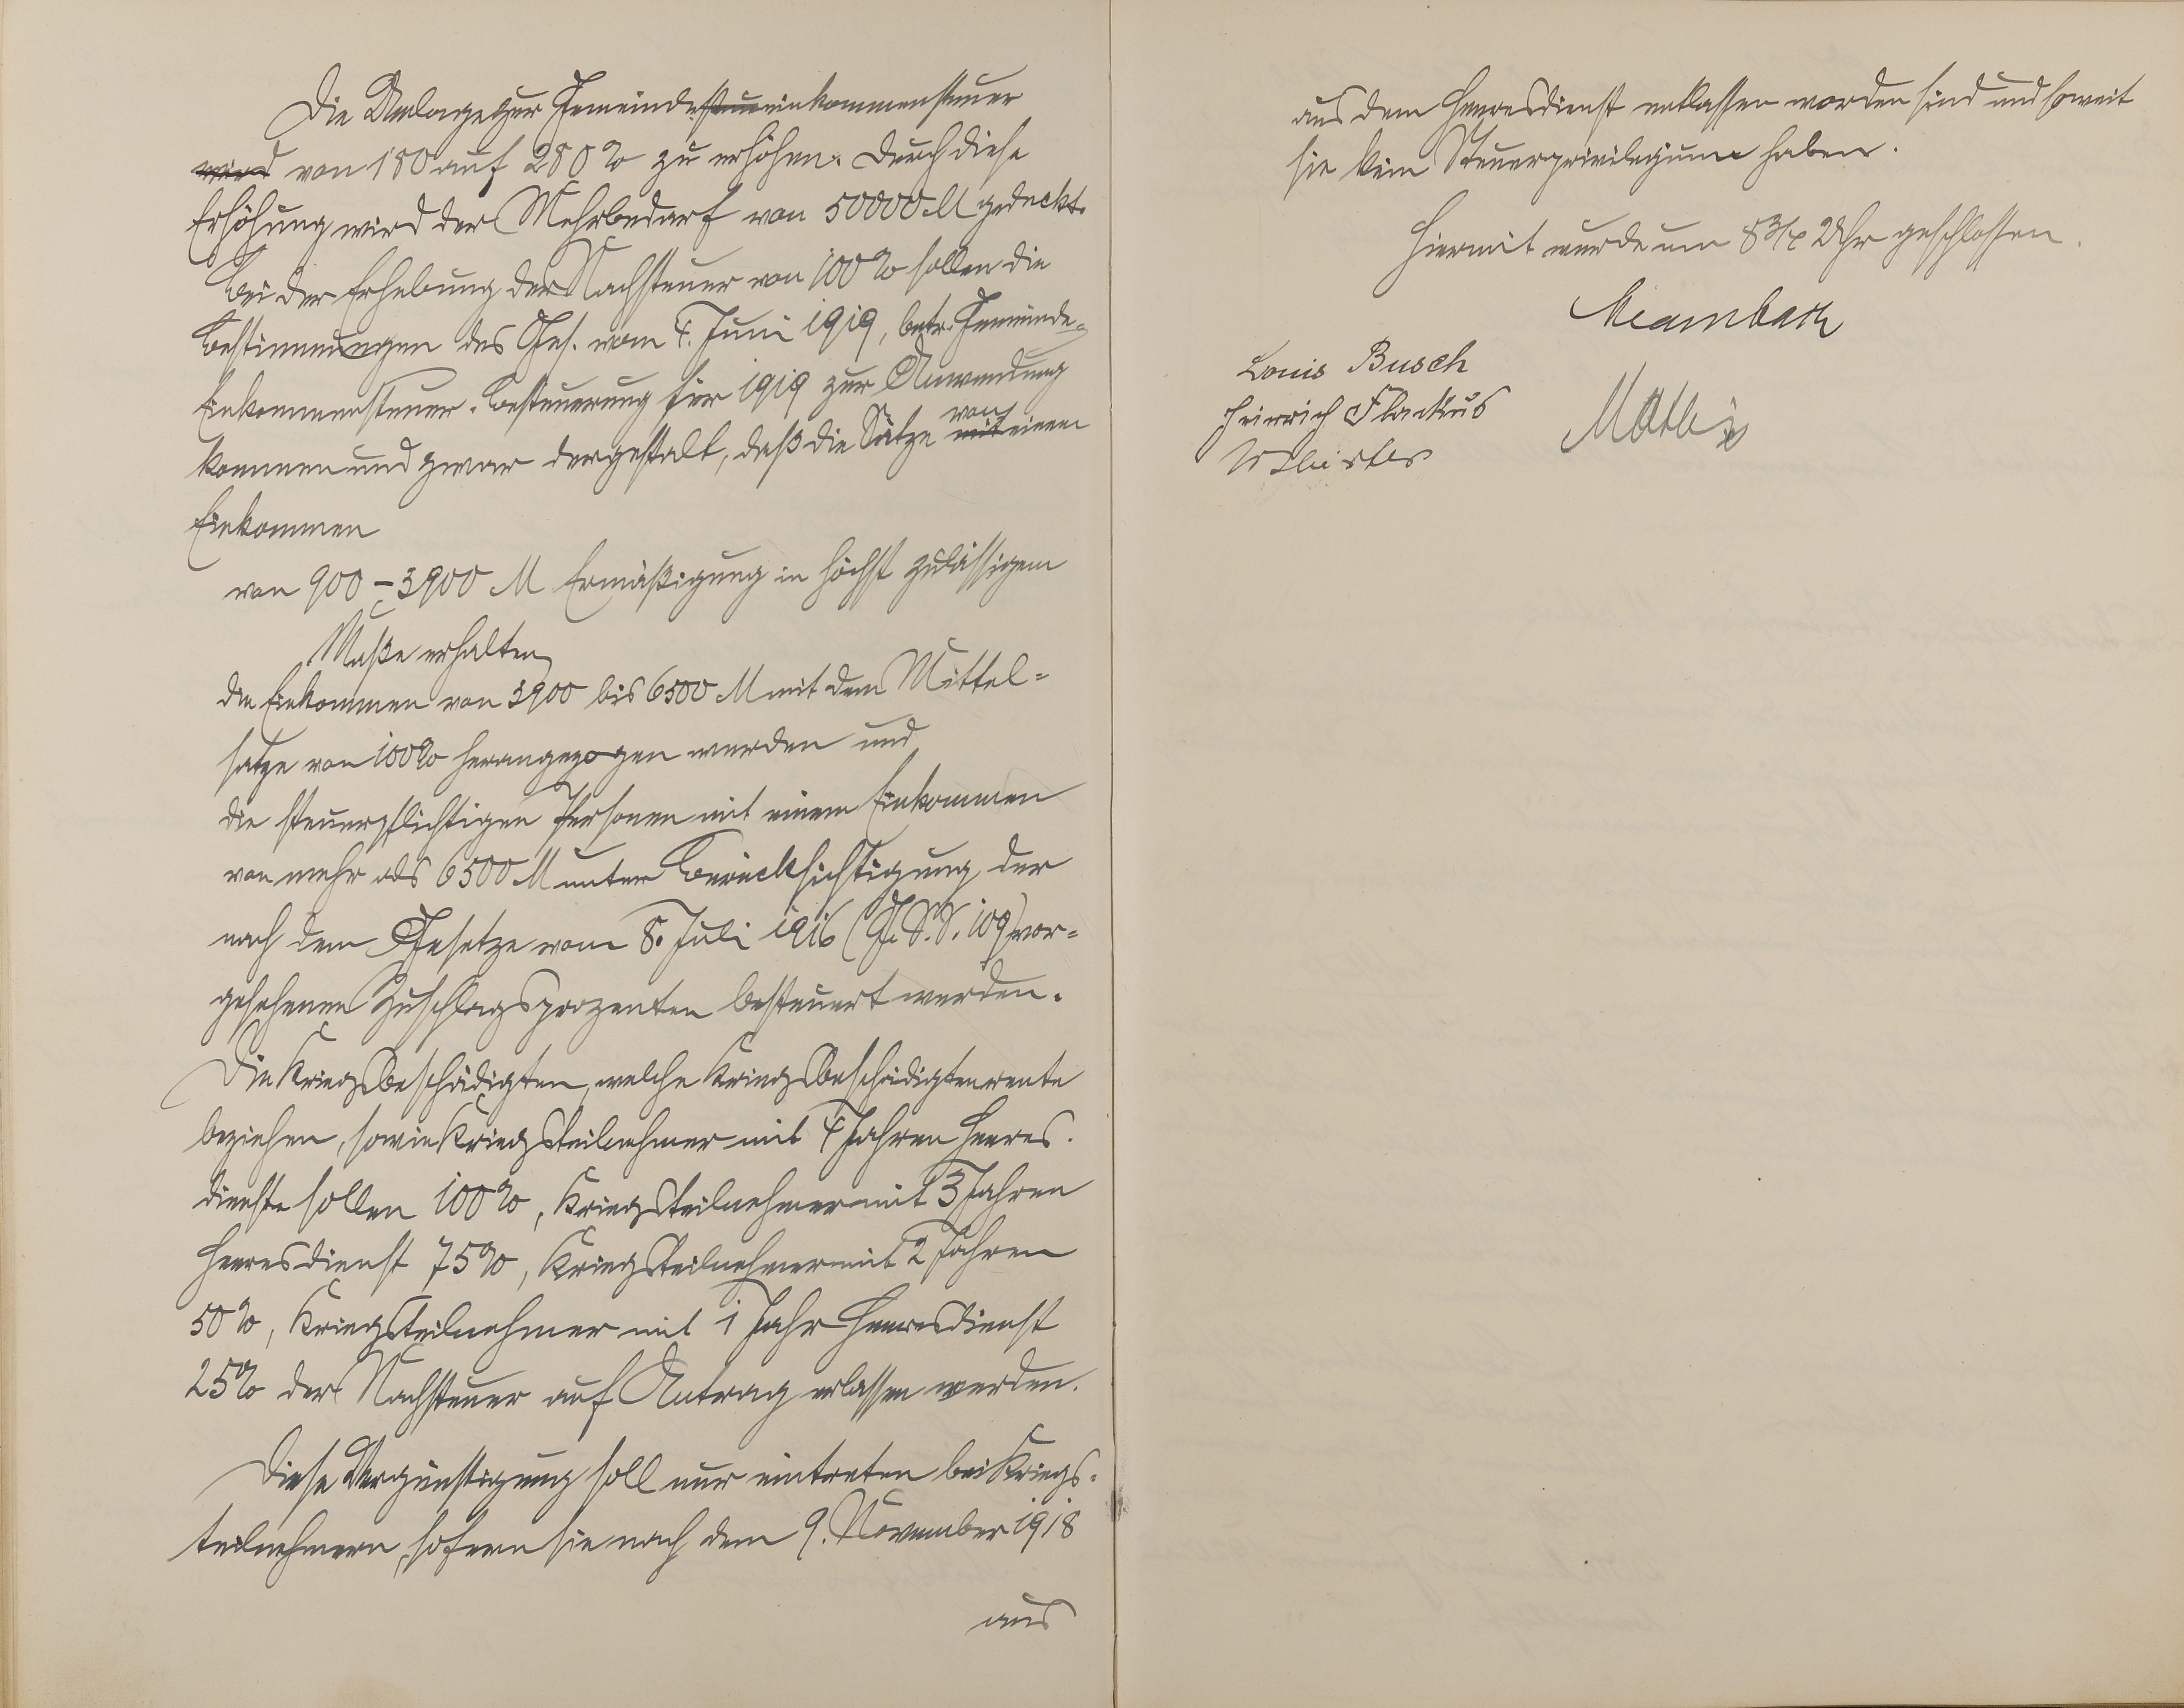 Die Umlage zur Gemeindesteuereinkommensteuer
wird von 180 auf 280% zu erhöhen. Durch diese
Erhöhung wird der Mehrbedarf von 50000 M gedeckt.
Bei der Erhebung der Nachsteuer von 100% sollen die
Bestimmungen des Ges. vom 4. Juni 1919, betr. Gemeinde-
Einkommensteuer-Besteuerung für 1919 zur Anwendung
kommen und zwar dergestalt, daß die Sätze mit von einem
Einkommen
von 900 – 3900 M Ermäßigung in höchst zulässigem
Maße erhalten,
die Einkommen von 3900 bis 6500 M mit dem Mittel-
satze von 100% herangezogen werden und
die steuerpflichtigen Personen mit einem Einkommen
von mehr als 6500 M unter Berücksichtigung der
nach dem Gesetze vom 8. Juli 1916 (G. S. S. 109) vor-
gesehenen Zuschlagsprozenten besteuert werden.
Die Kriegsbeschädigten, welche Kriegsbeschädigtenrente
beziehen, sowie Kriegsteilnehmer mit 4 Jahren Heeres-
dienste sollen 100%, Kriegsteilnehmer mit 3 Jahren
Heeresdienst 75%, Kriegsteilnehmer mit 2 Jahren
50%, Kriegsteilnehmer mit 1 Jahr Heeresdienst
25% der Nachsteuer auf Antrag erlassen werden.
Diese Vergünstigung soll nur eintreten bei Kriegs-
teilnehmern, sofern sie nach dem 9. November 1918
aus
aus dem Heeresdienst entlassen worden sind und soweit
sie kein Steuerprivilegium haben.
Hiermit wurde um 8 3/4 Uhr geschlossen.
Louis Busch
Heinrich Flackus